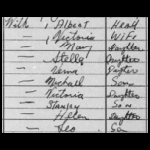 Wilk - Albert Head
- Victoria Wife
- Mary Daughter
- Stella Daughter
- Daughter
- Michael Son
- Victoria Daughter
- Stanley Son
- Helen Daughter
- Leo Son